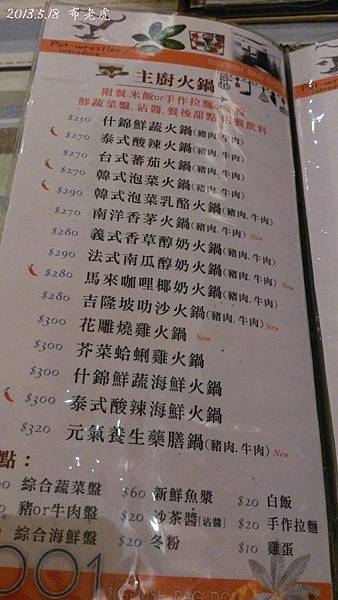 2013.5.18 布老虎
Pot-wrestler
introduce
TIGERISH RAG DOLL
主廚火鍋
附餐:米飯or手作拉麵or冬粉
鮮蔬菜盤.沾醬.餐後甜點.附餐飲料
$250 什錦鮮蔬火鍋(豬肉.牛肉)
$270 泰式酸辣火鍋(豬肉.牛肉)
$270 台式蕃茄火鍋(豬肉.牛肉)
$270 韓式泡菜火鍋(豬肉.牛肉)
$290 韓式泡菜乳酪火鍋(豬肉.牛肉)
$270 南洋香茅火鍋(豬肉.牛肉) New
$280 義式香草醇奶火鍋(豬肉.牛肉)
$290 法式南瓜醇奶火鍋(豬肉.牛肉)
$280 馬來咖哩椰奶火鍋(豬肉.牛肉) New
$280 吉隆坡叻沙火鍋(豬肉.牛肉) New
$300 花雕燒雞火鍋 New
$300 芥菜蛤蜊雞火鍋
$300 什錦鮮蔬海鮮火鍋
$300 泰式酸辣海鮮火鍋
$320 元氣養生藥膳鍋(豬肉.牛肉) New
點：
綜合蔬菜盤 $60 新鮮魚漿 $20 白飯
豬or牛肉盤 $20 沙茶醬[沾醬] $20 手作拉麵
綜合海鮮盤 $20 冬粉 $10 雞蛋
001
TIGERISH RAG DOLL